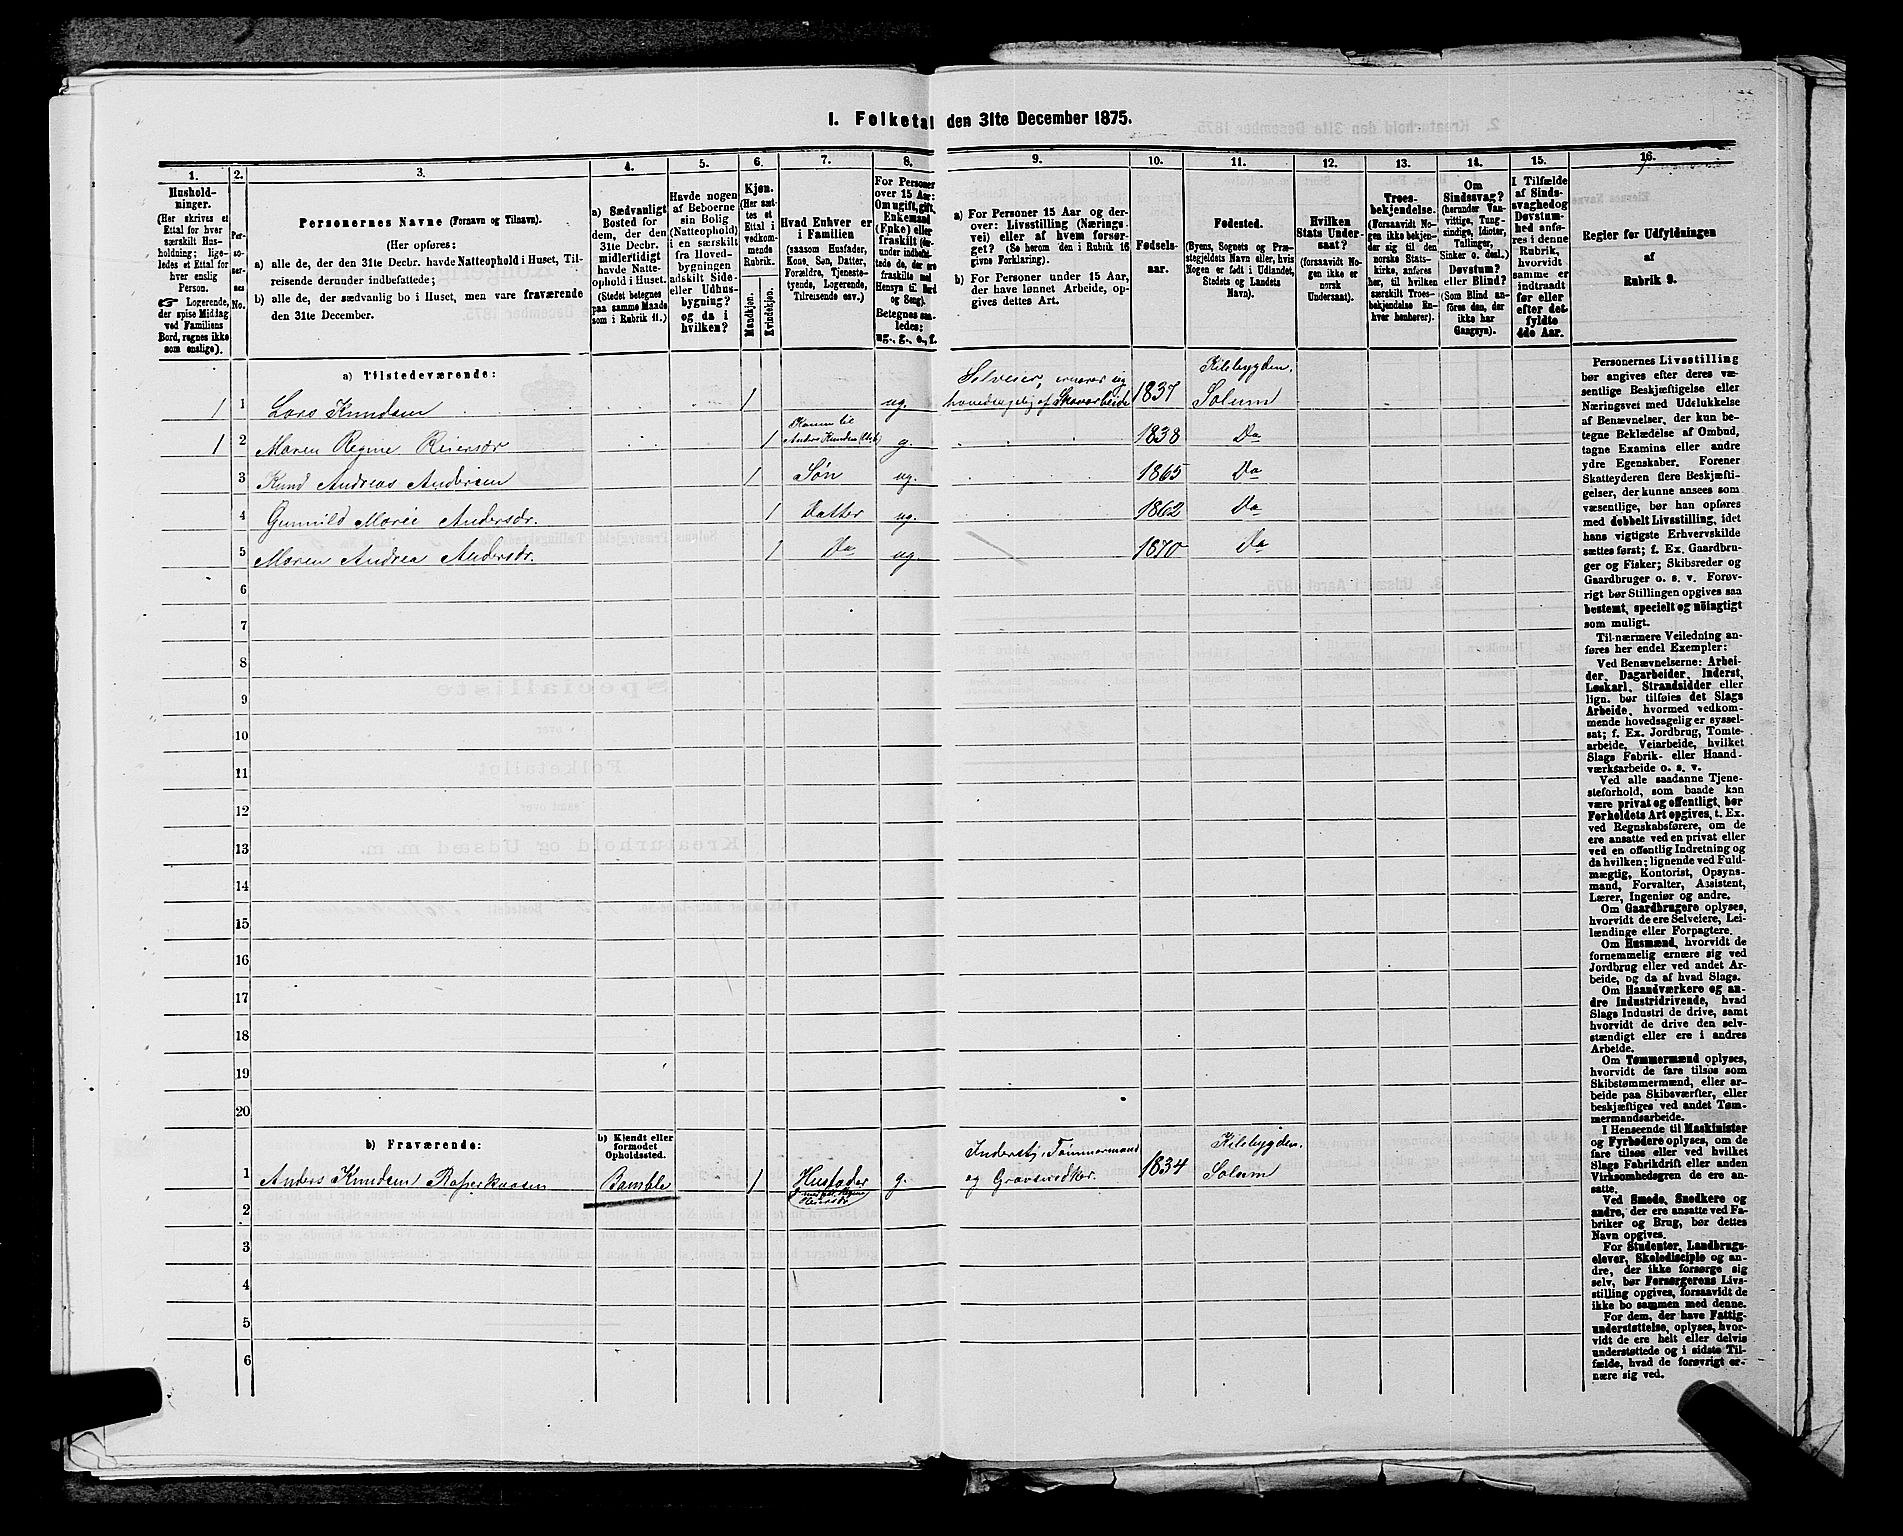 1. Folketal den 31te December 1875.
1. 2. 3. 4. 5. 6. 7. 8. 9. 10. 11. 12. 13. 14. 15. 16.
Hushold-
ninger.
(Her skrives et
Ettal for hver
særskilt Hus-
holdning; lige-
ledes et Ettal for
hver enslig
Person.
☞ Logerende,
der spise Middag
ved Familiens
Bord, regnes ikke
som enslige).
Per-
so-
ner-
nes
No.
Personernes Navne (Fornavn og Tilnavn).
(Her opføres:
a) alle de, der den 31te Decbr. havde Natteophold i Huset, Til-
reisende derunder indbefattede;
b) alle de, der sædvanlig bo i Huset, men vare fraværende
den 31te December.
a) Sædvanligt
Bosted for
dem, der den
31te Decbr.
midlertidigt
havde Natte-
ophold i Huset.
(Stedet betegnes
paa samme Maade
som i Rubrik 11.)
Havde nogen
af Beboerne
sin Bolig
(Natteophold)
i en særskilt
fra Hoved-
bygningen
adskilt Side-
eller Udhus-
bygning?
og da i
hvilken?
Kjøn.
(Her sæt-
tes et
Ettal i
vedkom-
mende
Rubrik.
Mandkjøn.
Kvindekjøn.
Hvad Enhver er
i Familien
(saasom Husfader,
Kone, Søn, Datter,
Forældre, Tjeneste-
tyende, Logerende,
Tilreisende osv.)
For Personer
over 15 Aar:
Om ugift, gift,
Enkemand
(Enke) eller
fraskilt (der-
under indbefat-
tede de, der ere
fraskilte med
Hensyn til Bord
og Seng).
Betegnes saa-
ledes:
ug., g., e., f.
a) For Personer 15 Aar og der-
over: Livsstilling (Nærings-
vei) eller af hvem forsør-
get? (Se herom den i Rubrik 16
givne Forklaring).
b) For Personer under 15 Aar,
der have lønnet Arbeide, op-
gives dettes Art.
Fødsels-
aar.
Fødested.
(Byens, Sognets og Præ-
stegjeldets Navn eller, hvis
Nogen er født i Udlandet,
Stedets og Landets
Navn).
Hvilken
Stats Under-
saat?
(forsaavidt No-
gen ikke er
norsk
Undersaat).
Troes-
bekjendelse.
(Forsaavidt No-
gen ikke bekjen-
der sig til den
norske Stats-
kirke, anføres
her, til hvilken
særskilt Troes-
bekjendelse En-
hver henhører).
Om
Sindssvag?
(herunder Van-
vittige, Tung-
sindige, Idioter,
Tullinger,
Sinker o. desl.)
Døvstum?
eller Blind?
(Som Blind an-
føres den, der
ikke har
Gangsyn).
I Tilfælde
af Sinds-
svaghed og
Døvstum-
hed anfø-
res i denne
Rubrik,
hvorvidt
samme er
indtraadt
før eller
efter det
fyldte
4de Aar.
Regler for Udfyldningen
af
Rubrik 9.
a) Tilstedeværende:
1 1 Lars Knudsen 1 ug. Selveier, ernærer sig hovedsagelig af Skovarbeide 1837 Kilebygden. Solum
1 2 Maren Regine Reiersdr 1 Konen til Anders Knudsen g. 1838 Do
3 Knud Andreas Andersen 1 Søn ug. 1865 Do
4 Gunnild Marie Andersdr. 1 Datter ug. 1862 Do
5 Maren Andrea Andersdr. 1 Do ug 1870 Do
6
7
8
9
10
11
12
13
14
15
16
17
18
19
20
b) Fraværende:
b) Kjendt eller
formodet
Opholdssted.
1 Anders Knudsen Bamble 1 Husfader g. Inderst, Tømmermand og 1834 Kilebygden. Solum
2
3
4
5
6
Personernes Livsstilling
bør angives efter deres væ-
sentlige Beskjæftigelse eller
Næringsvei med Udelukkelse
af Benævnelser, der kun be-
tegne Beklædelse af Ombud,
tagne Examina eller andre
ydre Egenskaber. Forener
Skatteyderen flere Beskjæfti-
gelser, der kunne ansees som
væsentlige, bør han opføres
med dobbelt Livsstilling, idet
hans vigtigste Erhvervskilde
sættes først; f. Ex. Gaardbru-
ger og Fisker; Skibsreder og
Gaardbruger o. s. v. Forøv-
rigt bør Stillingen opgives saa
bestemt, specielt og nöiagtigt
som muligt.
Til nærmere Veiledning an-
føres her endel Exempler:
Ved Benævnelserne: Arbei-
der, Dagarbeider, Inderst,
Løskarl, Strandsidder eller
lign. bør tilføies det Slags
Arbeide, hvormed vedkom-
mende hovedsagelig er syssel-
sat; f. Ex. Jordbrug, Tomte-
arbeide, Veiarbeide, hvilket
Slags Fabrik- eller Haand-
værksarbeide o. s. v.
Ved alle saadanne Tjene-
steforhold, som baade kan
være privat og offentligt, bør
Forholdets Art opgives, t. Ex.
ved Regnskabsførere, om de
ere ansatte ved en privat eller
ved en offentlig Indretning og
da hvilken; lignende ved Fuld-
mægtig, Kontorist, Opsyns-
mand, Forvalter, Assistent,
Lærer, Ingeniør og andre.
Om Gaardbrugere oplyses,
hvorvidt de ere Selveiere, Lei-
lændinge eller Forpagtere.
Om Husmænd, hvorvidt de
fornemmelig ernære sig ved
Jordbrug eller ved andet Ar-
beide, og da af hvad Slags.
Om Haandværkere og an-
dre Industridrivende, hvad
Slags Industri de drive, samt
hvorvidt de drive den selv-
stændigt eller ere i andres
Arbeide.
Om Tømmermænd oplyses,
hvorvidt de fare tilsøs som
Skibstømmermænd, eller ar-
beide paa Skibsværfter, eller
beskjæftiges ved andet Tøm-
mermandsarbeide.
I Henseende til Maskinister
og Fyrbødere oplyses, om de
fare tilsøs eller ved hvilket
Slags Fabrikdrift eller anden
Virksomhedsgren de ere an-
satte.
Ved Smede, Snedkere og
andre, der ere ansatte ved Fa-
briker og Brug, bør dettes
Navn opgives.
For Studenter, Landbrugs-
elever, Skoledisciple og an-
dre, der ikke forsørge sig
selv, bør Forsørgerens Livs-
stilling opgives, forsaavidt de
ikke bo sammen med denne.
For dem, der have Fattig-
understøttelse, oplyses, hvor-
vidt de ere helt eller delvis
understøttede og i sidste Til-
fælde, hvad de forøvrigt er-
nære sig ved.